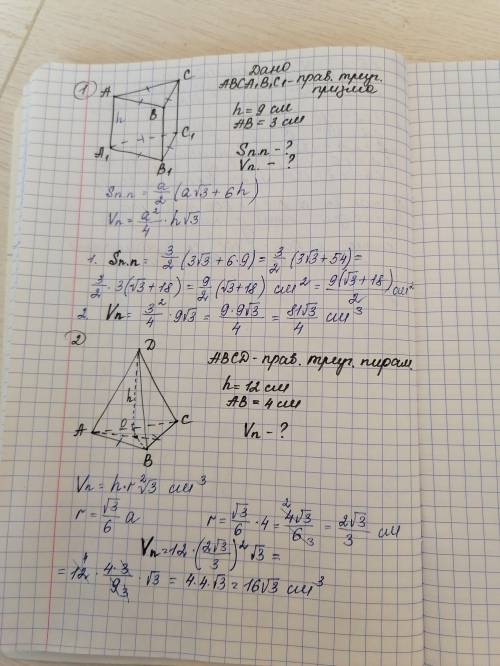 1
Дано
ABCA₁B₁C₁ - прав. треуг.
призма
h = 9 см
AB = 3 см
Sп.п - ?
Vп. - ?
A
B
C
h
A₁
B₁
C₁
Sп.п = a/2 (a√3 + 6h)
Vп = a²/4 · h√3
1. Sп.п = 3/2 (3√3 + 6·9) = 3/2 (3√3 + 54) =
3/2 · 3(√3 + 18) = 9/2 (√3 + 18) см² = 9(√3 + 18)/2 см²
2. Vп = 3²/4 · 9√3 = 9·9√3/4 = 81√3/4 см³
2
D
h
A
O
B
C
ABCD - прав. треуг. пирам.
h = 12 см
AB = 4 см
Vп - ?
Vп = h·r²√3 см³
r = √3/6 a
r = √3/6 · 4 = 2 4√3/6 3 = 2√3/3 см
Vп = 12 · (2√3/3)² √3 =
= 12 4 · 4·3/9 3 · √3 = 4·4·√3 = 16√3 см³